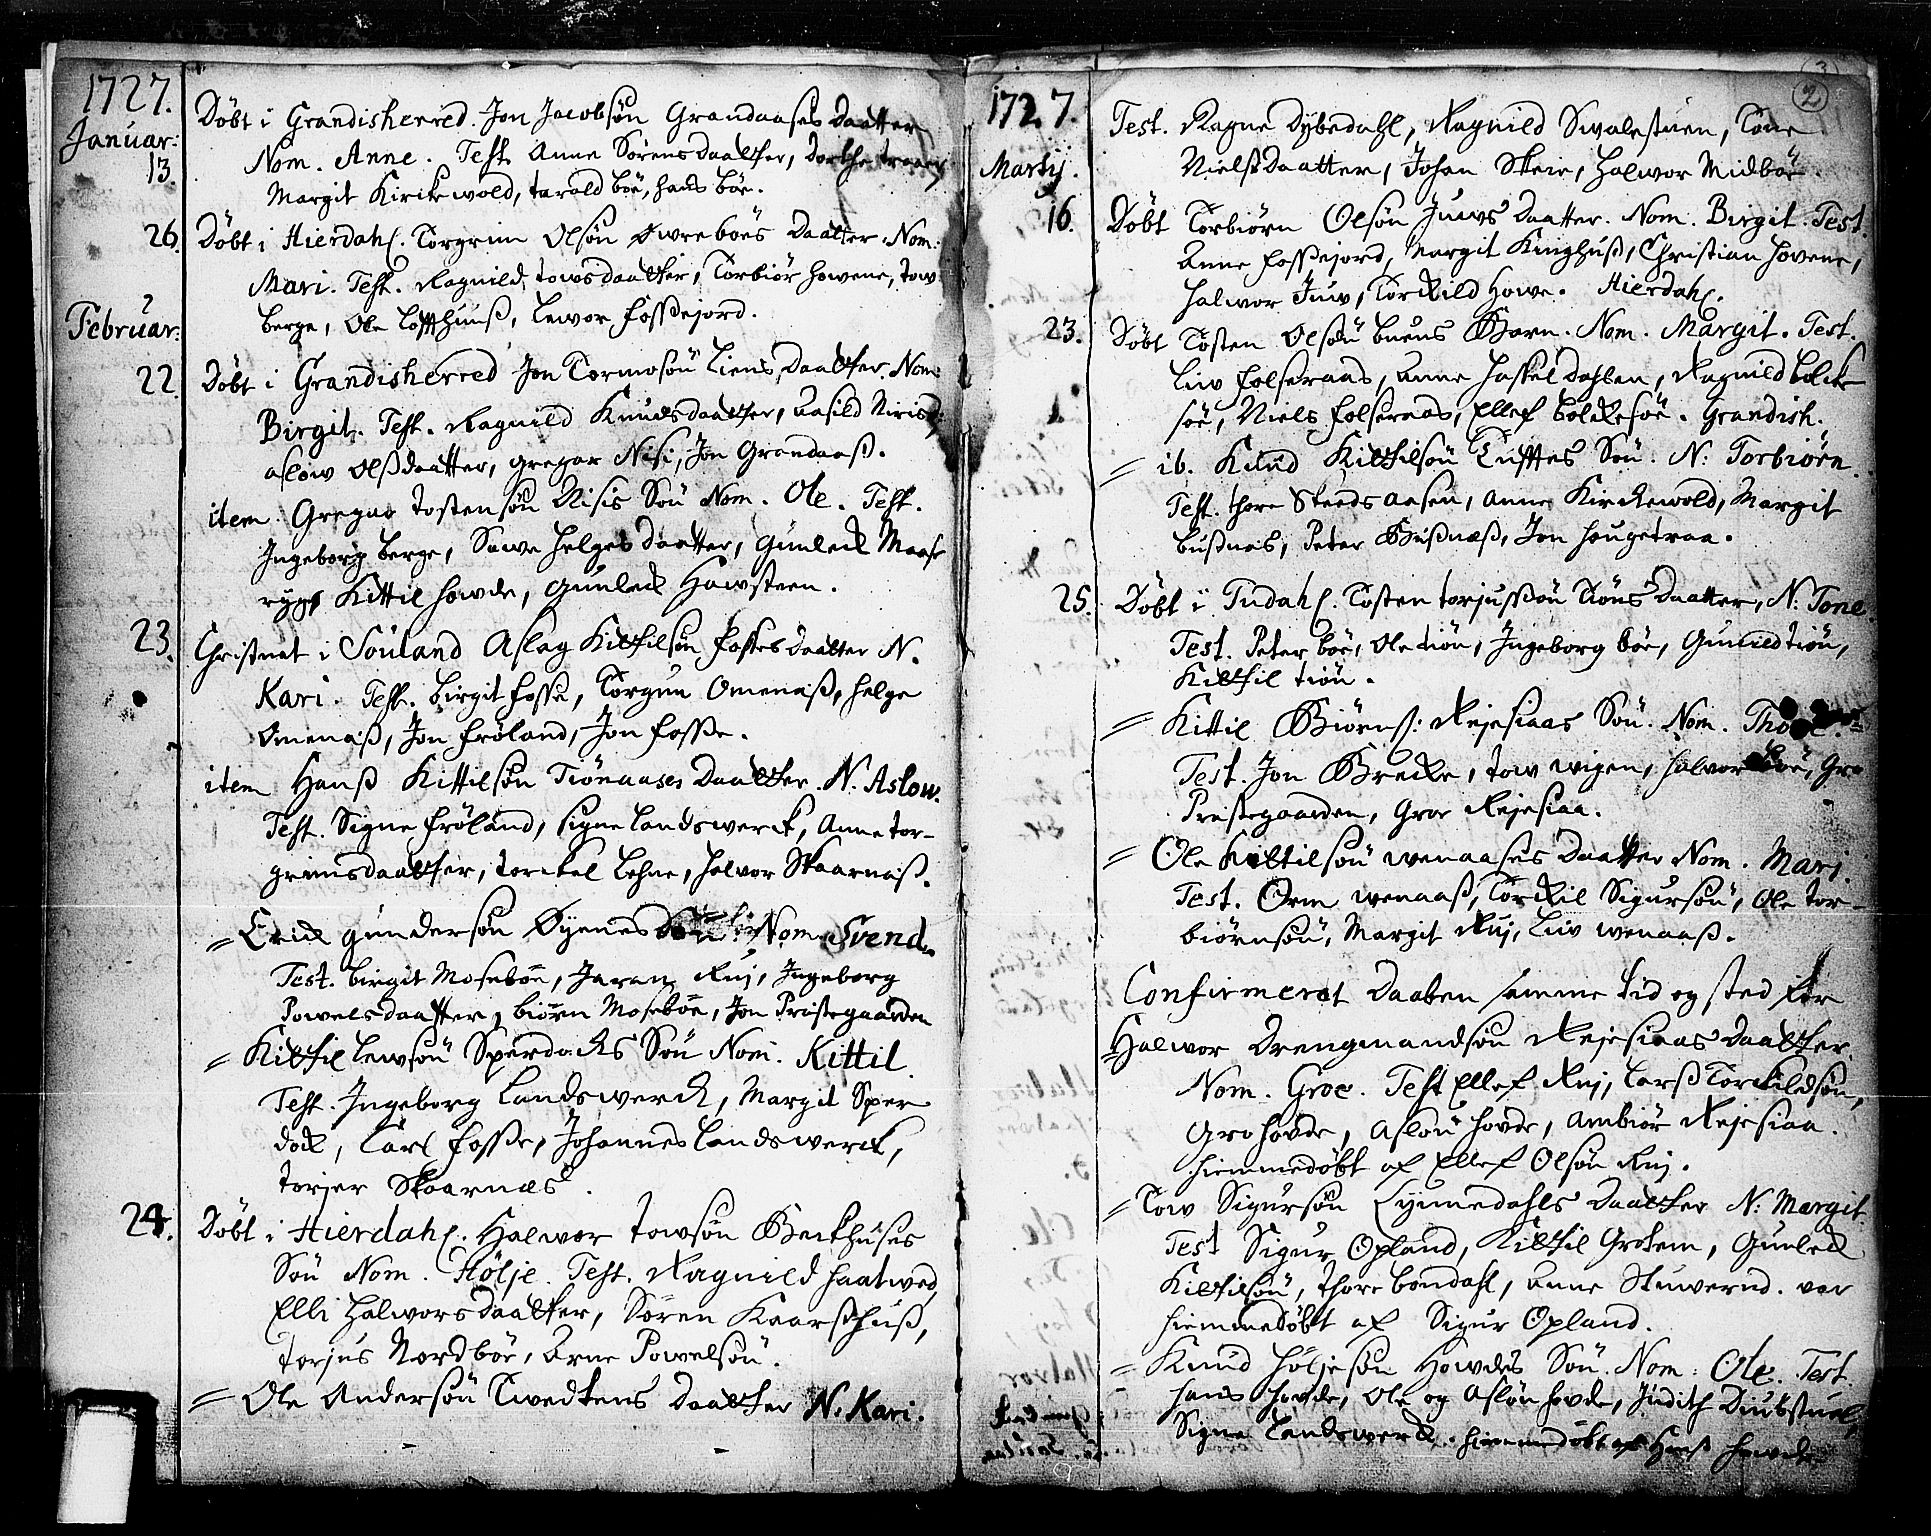 1727.
Januar:
13. Döbt i Grandisherred. Jon Jacobsön Grandaases Daatter
Nom. Anne. Test. Anne Sörensdaatter, Dorthe traaer,
Margit Kirckewold, tarald böe, hans böe.
26. Döbt i Hierdahl. Torgrim Olsön Öwreböes Daatter. Nom:
Mari. Test. Ragnild towsdaatter, Torbiör howene, tow
berge, Ole loffthuuß, lewor foßejord.
Februar:
22 Döbt i Grandisherred Jon Tormosön Liens Daatter. Nom:
Birgit. Test. Ragnild Knudsdaatter, Aasild
aslow Olsdaatter, gregar Nisi, Jon Grandaaß.
item. Gregar tostensön Nisis Sön Nom. Ole. Test.
Ingeborg berge, Sawe helgesdaatter, Gunleck Maase
rygg, Kittil howde, Gunleck Hawsteen.
23. Christnet i Söuland Aslag Kittilsön foßes daatter N.
Kari. Test. birgit foße, Torgun Omenaiß, helge
Omenaiß, Jon fröland, Jon foße.
item Hanß Kittilsön Tiönaases Daatter. N. Aslow.
Test. Signe fröland, signe landswerck, Anne tor-
grimsdaatter, torckel lehne, halvor Skaarnaiß.
= Erick gundersön Öynes Sön. Nom. Svend.
Test. birgit Moseböe, Jaran Ruj, Ingeborg
Powelsdaatter, biörn Moseböe, Jon Præstegaarden
= Kittil lewsön Sperdocks Sön Nom. Kittil.
Test. Ingeborg Landswerck, Margit Sper
dock, Carl foße, Johannes landswerck,
torjer Skaarnæs.
24. Döbt i Hierdahl. Halwor towsön Beckhuses
Sön Nom. Hölje. Test. Ragnild haatwed,
Elli halworsdaatter, Sören Kaarshuß,
torjus Nordböe, Arne Powelsön.
= Ole Andersön Twedtens daatter N. Kari.
1727.
2
Test. Ragne Dybedahl, Ragnild Swalestuen, Tone
Nielsdaatter, Johan Skeie, halwor Midböe.
Martij.
16. Döbt Torbiörn Olsön Juws Daatter. Nom. Birgit. Test.
Anne foßejord, Margit Kinghuß, Christian hovene,
halwor Juw, Torckild howe. Hierdahl.
23. Döbt Tosten Olsön buens Barn. Nom. Margit. Test.
Liw folseraas, Anne haßeldahlen, Ragnild bolcke
söe, Niels folseraas, Ellef bolckesöe. Grandish.
= ib. Knud Kittilsön Tufftes Sön. N: Torbiörn.
Test. thore Steedsaasen, Anne Kirckewold, Margit
bußnæs, Peter Bußnæß, Jon haugetraa.
25. Döbt i Tudahl. Tosten torjußön tiöns Daatter, N. Tone.
Test. Peter böe, Ole tiön, Ingeborg böe, Gunild tiön,
Kittil tiön.
= Kittil Biörns: Rejesiaas Sön. Nom.
Test. Jon Brecke, tow wigen, halvor böe, Gro
Præstegaarden, Groe Rejesiaa.
= Ole Kittilsön wenaases Daatter Nom. Mari.
Test. Orm wenaaß, Torckil Sigursön, Ole tor-
biörnsön, Margit Ruj, Liw wenaaß.
Confirmeret Daaben samme tid og sted for
= Halwor Drengmandsön Rejesiaas daatter.
Nom. Groe. Test Ellef Ruj, Larß Torkildsön,
Gro hovde, Aslou hovde, Ambiör Rejesiaa.
hiemmedöbt af Ellef Olsön Ruj.
= Tow Sigursön Lynnedahls Daatter N: Margit.
Test Sigur Opland, Kittil Grotem, Gunleck
Kittilsön, thore bondahl, Anne Stuwerud. var
hiemmedöbt af Sigur Opland.
= Knud höljesön Howdes Sön. Nom: Ole. Test.
hans hovde, Ole og Aslön hovde, Judith Diubstuel,
Signe Landswerck. hiemmedöbt af Hanß howde.